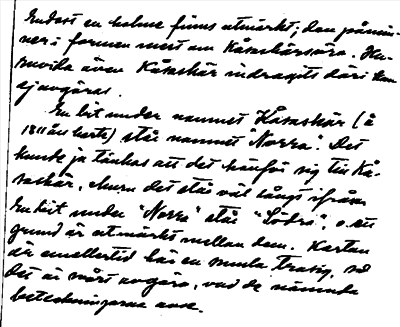 Endast en holme finns utmärkt; den påmin-
ner i formen mest om Kåraskärsöra. Hu-
ruvida även Kåraskär indragits däri kan
ej avgöras.
En bit under namnet Kåraskär (å
1811 års karta) står namnet "Norra". Det
kunde ju tänkas att det hänför sig till Kå-
raskär, ehuru det står väl långt ifrån.
En bit under "Norra" står "Södra", o. ett
grund är utmärkt mellan dem. Kartan
är emellertid här en smula trasig, så
det är svårt avgöra, vad de nämnda
beteckningarna avse.